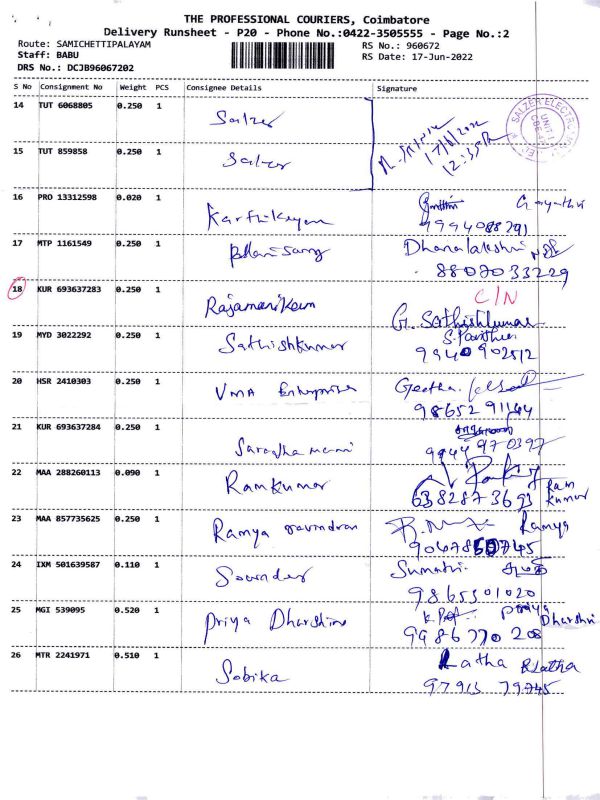 THE PROFESSIONAL COURIERS, Coimbatore
Delivery Runsheet - P20 - Phone No.:0422-3505555 - Page No.:2
Route: SAMICHETTIPALAYAM RS No.: 960672
Staff: BABU RS Date: 17-Jun-2022
DRS No.: DCJB96067202
S No Consignment No Weight PCS Consignee Details Signature
14 TUT 6068805 0.250 1 Salzer
17/6/2022
12:35
SALZER ELECTR
UNIT I
15 TUT 859858 0.250 1 Salzer
16 PRO 13312598 0.020 1 Karthikeyan Gayathri
9994088291
17 MTP 1161549 0.250 1 Dhanalakshmi
8807033229
18 KUR 693637283 0.250 1 Rajamanikam C/N
G. Sathishkumar
19 MYD 3022292 0.250 1 Sathishkumar
9940902512
20 HSR 2410303 0.250 1 VMA Enterprises Geetha
9865291164
21 KUR 693637284 0.250 1 Saradhamani
9944970397
22 MAA 288260113 0.090 1 Ramkumar Ram
6382873693 kumar
23 MAA 857735625 0.250 1 Ramya Ramya
24 IXM 501639587 0.110 1 Sounder Sumathi
9865301020
25 MGI 539095 0.520 1 Priya Dharshini Priya
Dharshni
9986770208
26 MTR 2241971 0.510 1 Sobika Latha Latha
97915 79745